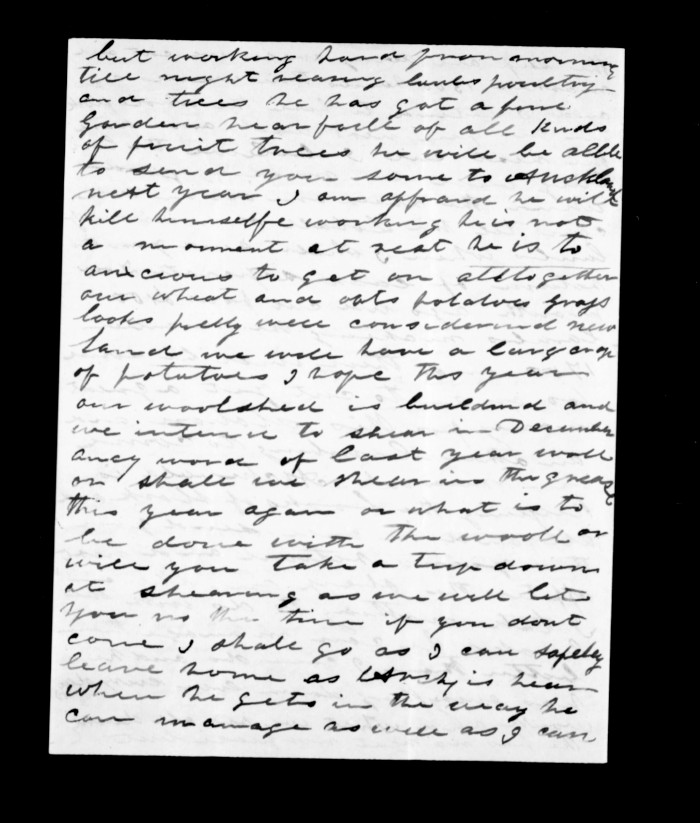 but working hard from morning
till night rearing lambs poultry
and trees he has got a fine
Garden hear full of all kinds
of fruit trees he will be allble
to send you some to Auckland
next year I am affraid he will
kill himselfe working he is not
a moment at reat he is to
anxcious to get on alltogether
our wheat and oats potatoes grass
looks pretty well considerind new
land we will have a larg crop
of potatoes I hope this year
our woolshed is buildind and
we intend to shear in December
ancy word of last year wooll
or shall we shear in the grease
this year again or what is to
be done with the wooll or
will you take a trip down
at shearing as we will let
you no the time if you dont
come I shall go as I can safely
leave home as Archy is hear
when he gets in the way he
can manage as well as I can